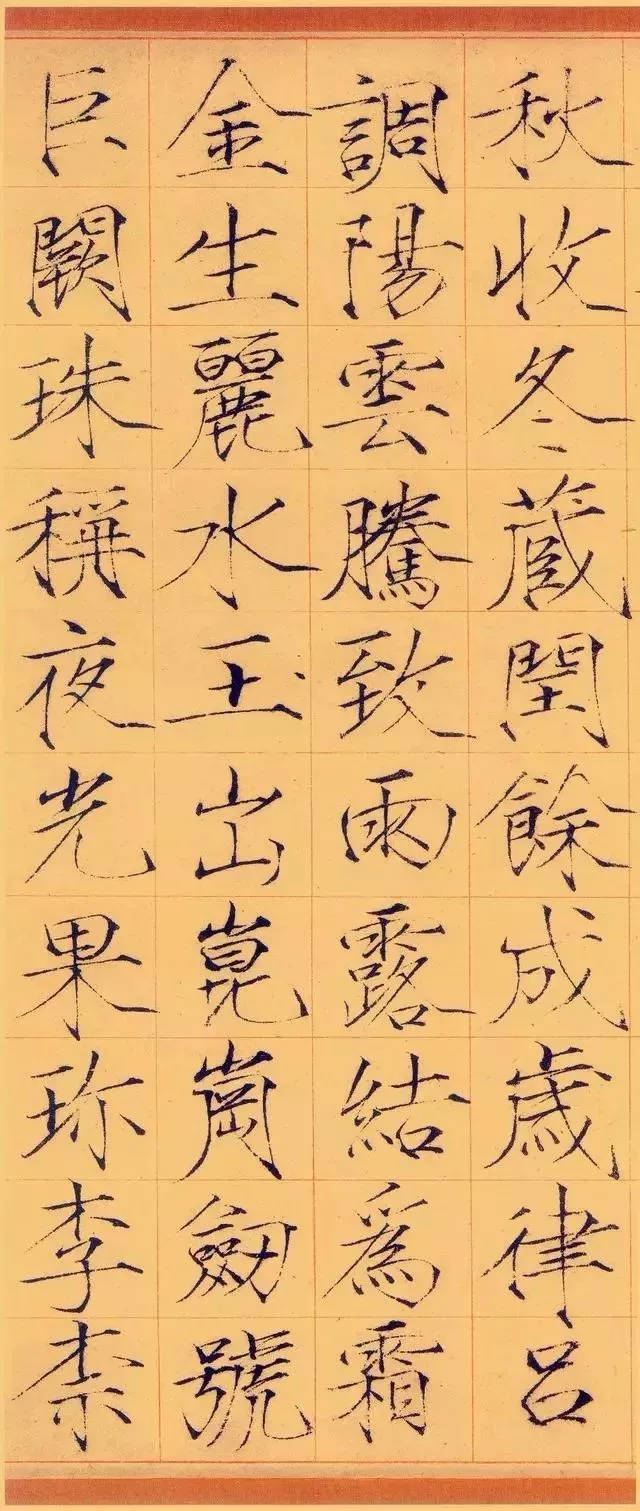 秋收冬蔵閏餘成歲律呂
調陽雲騰致雨露結為霜
金生麗水玉出崑崗劔號
巨闕珠稱夜光果珎李柰